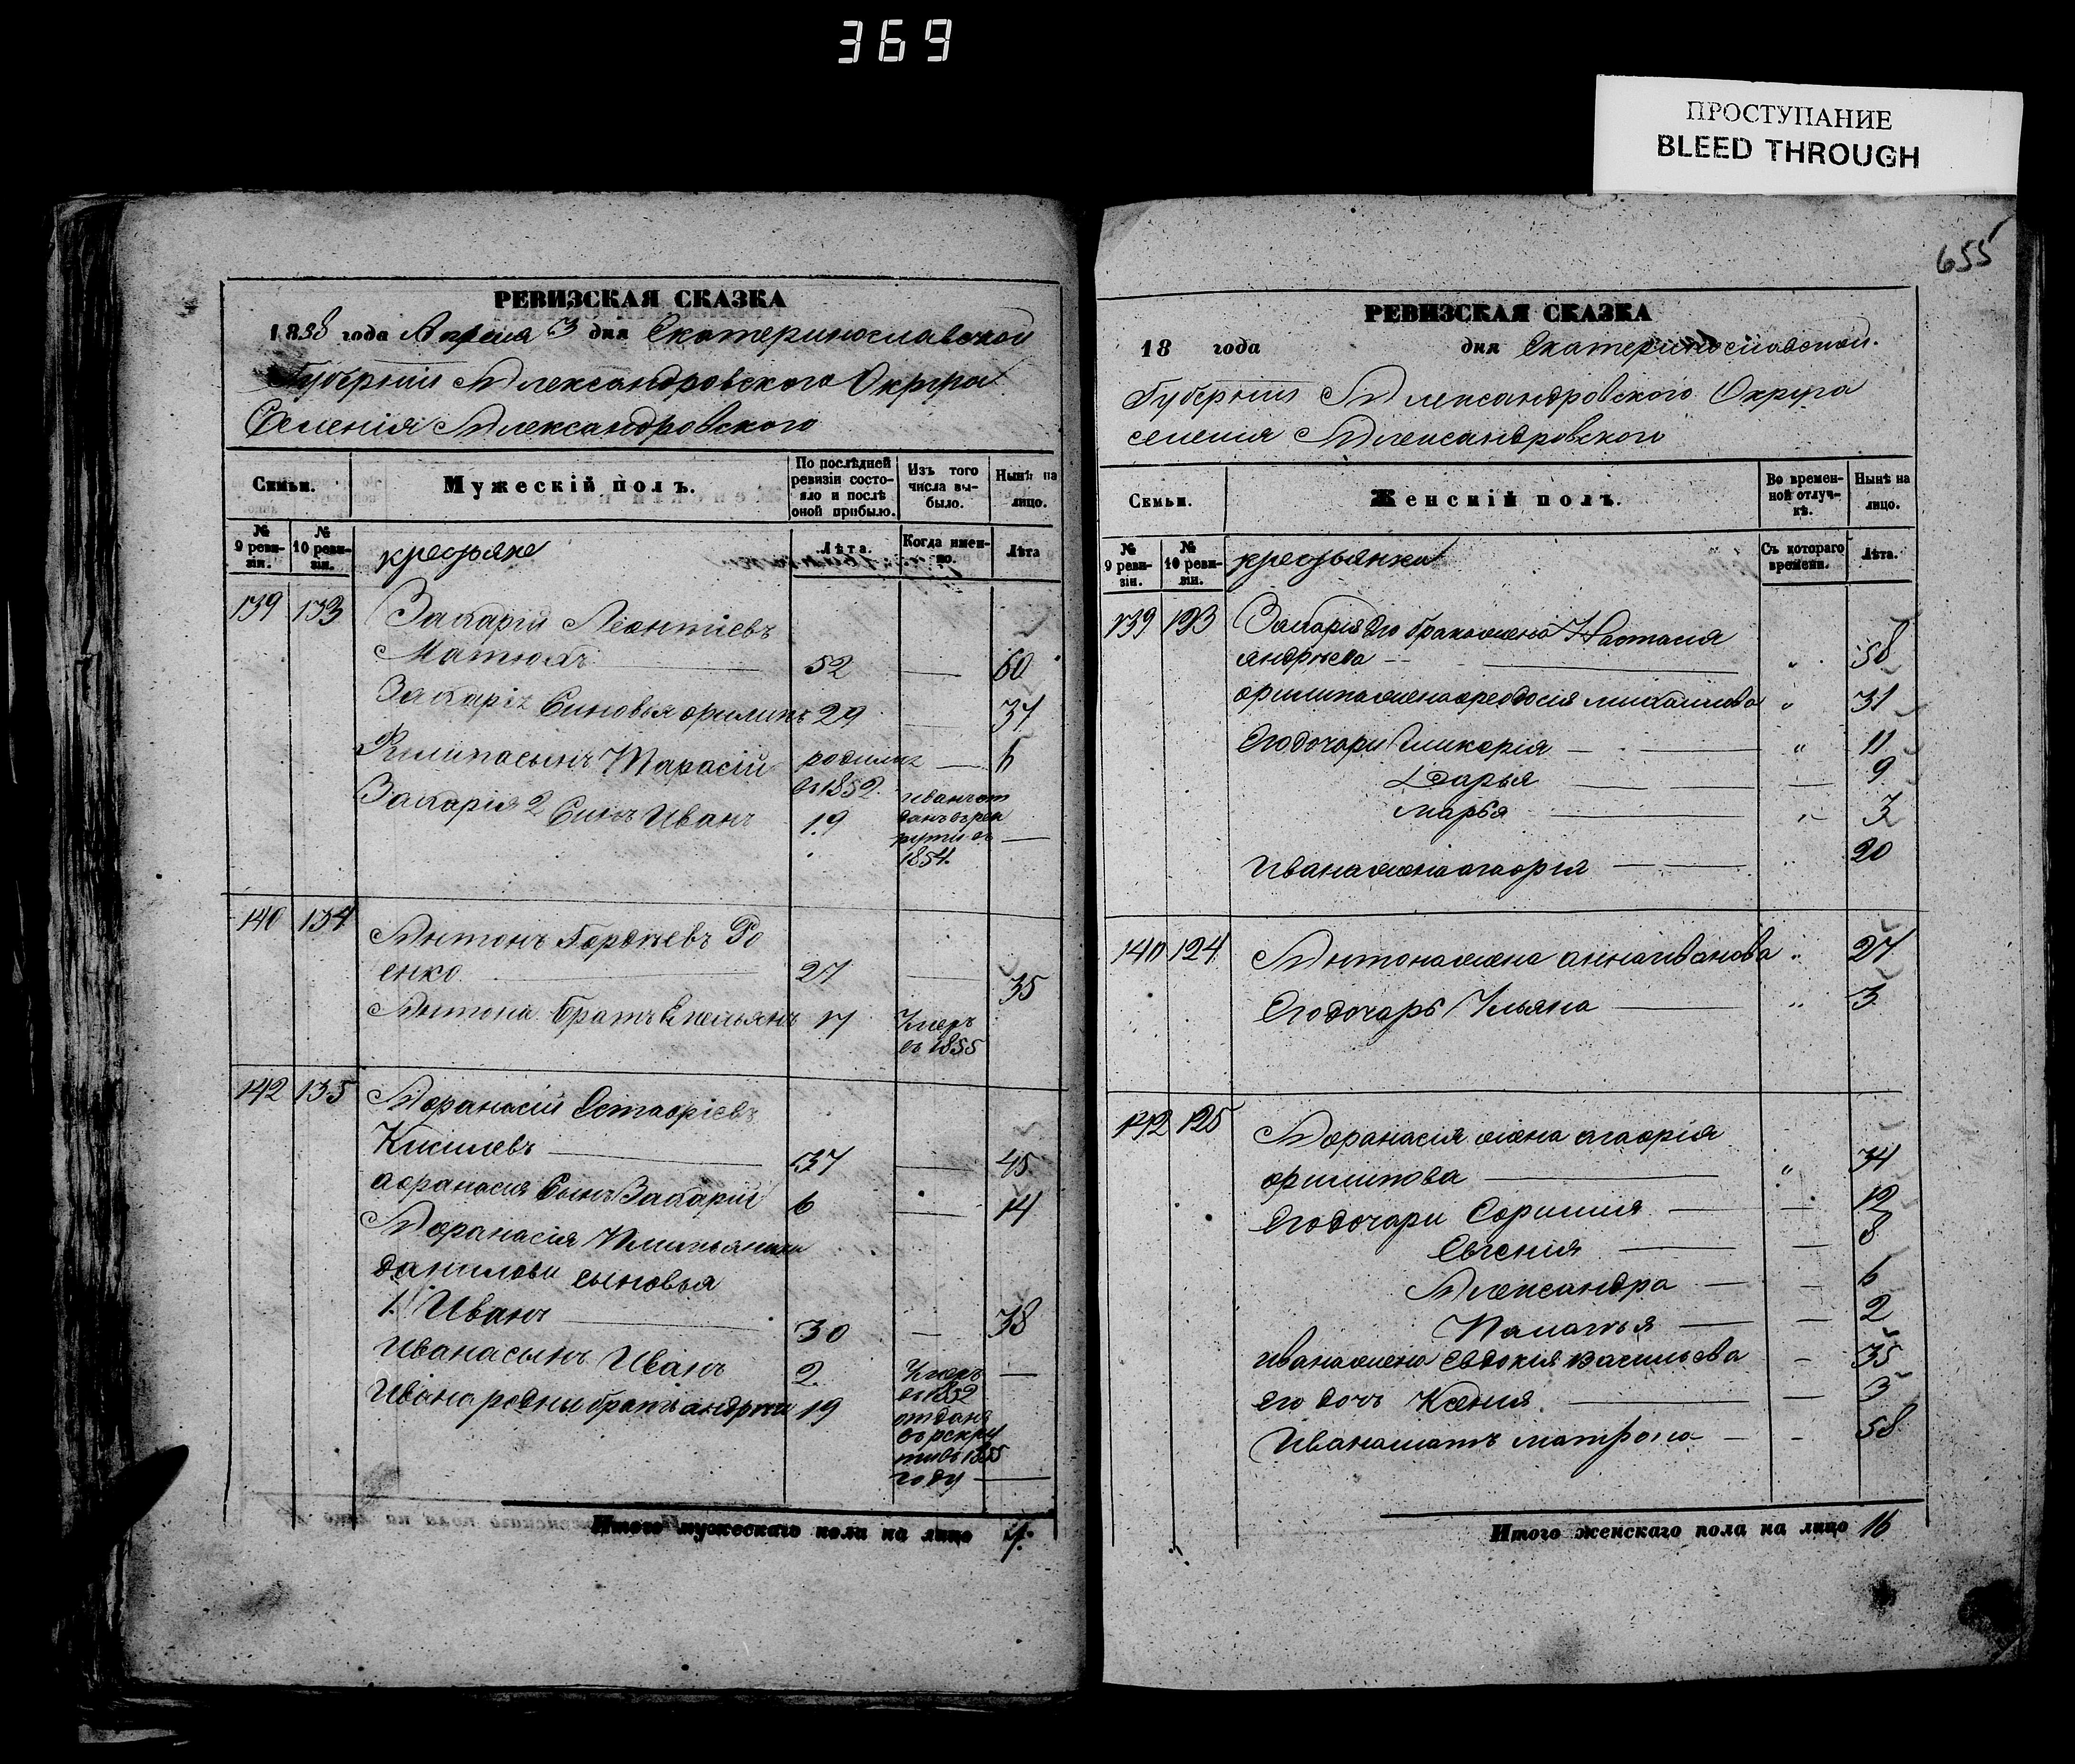 369
ПРОСТУПАНИЕ
BLEED THROUGH
655
РЕВИЗСКАЯ СКАЗКА
1858 года Апреля 3 дня Екатеринославской
Губерніи Александровского Округа
Селенія Александровского
Семьи.
Мужескій полъ.
По послѣдней ревизіи состояло и послѣ оной прибыло.
Изъ того числа выбыло.
Нынѣ на лицо.
№ 9 ревизіи.
№ 10 ревизіи.
крестьяне
Лѣта.
Когда именно.
Лѣта
139 133 Захарій Леонтіевъ
Матюхъ 52 — 60
Захарія Синовья филипъ 29 37
Филипа сынъ Тарасій родился — 6
въ 1852.
Захарія 2 Синъ Иванъ 19 иванъ от
данъ въ рек
рути въ —
1854.
140 134 Антонъ Гордѣевъ
енко 27 35
Антона братъ Емельянъ 17 Умеръ
въ 1855
142 135 Афанасій Остафіевъ
Кисилевъ 37 — 45
афанасія Сынъ Захарій 6 — 14
Афанасія
данилови сыновья
1. Иванъ 30 — 38
Ивана сынъ Иванъ 2 Умеръ —
въ 1852
Ивана родны братъ андрѣй 19 отданъ
въ рекру
ти въ 1855
году —
Итого мужескаго пола на лицо 7.
РЕВИЗСКАЯ СКАЗКА
18 года дня Екатеринославской.
Губерніи Александровского Округа
селенія Александровского
Семьи.
Женскій полъ.
Во временной отлучкѣ.
Нынѣ на лицо.
№ 9 ревизіи.
№ 10 ревизіи.
крестьянки
Съ котораго времени.
Лѣта.
139 123 Захарія 2го брака жена Настасія
андрѣева — 58
филипа жена феодосія михаилова " 31
Его дочари Гликерія — " 11
Дарья — 9
марья — " 3
Ивана жена агафія — " 20
140 124 Антона жена анна иванова " 27
Его дочарь Ульяна — " 3
142 125 Афанасія жена агафія
филипова — " 34
Его дочари Софилия — 12
Евгенія — 8
Александра — 6
Палагья — 2
ивана жена Евдокія васильева — 35
его дочь Ксения — 3
Ивана мать матрона — 58
Итого женскаго пола на лицо 16